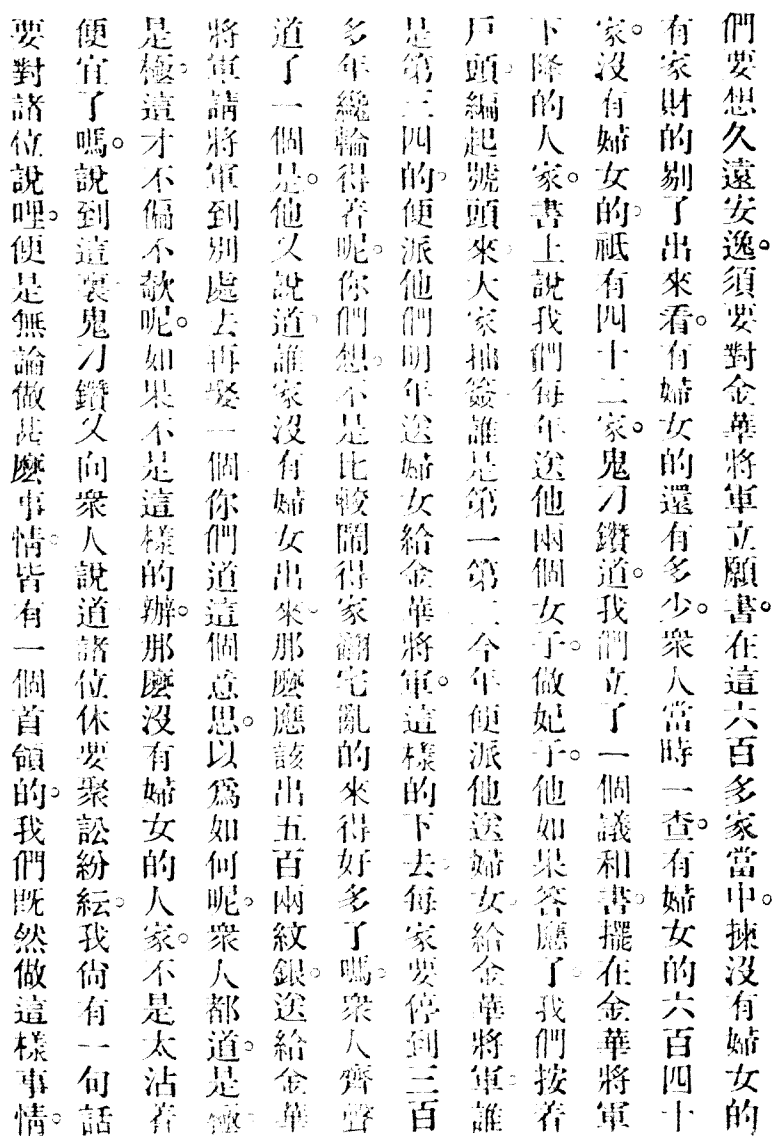 們要想久遠安逸。須要對金華將軍立願書。在這六百多家當中。揀沒有婦女的
有家財的剔了出來看。有婦女的還有多少。衆人當時一查。有婦女的六百四十
家。沒有婦女的。祇有四十二家。鬼刀鑽道。我們立了一個議和書。擺在金華將軍
下降的人家。書上說我們每年送他兩個女子。做妃子。他如果答應了。我們按着
戶頭。編起號頭來。大家抽簽。誰是第一第二。今年便派他送婦女。給金華將軍。誰
是第三四的。便派他們明年送婦女給金華將軍。這樣的下去。每家要停到三百
多年纔輪得着呢。你們想。不是比較鬧得家翻宅亂的來得好多了嗎。衆人齊聲
道了一個是。他又說道。誰家沒有婦女出來。那麼應該出五百兩紋銀。送給金華
將軍。請將軍到別處去再娶一個。你們道這個意思。以爲如何呢。衆人都道。是極
是極。這才不偏不欹呢。如果不是這樣的辦。那麼沒有婦女的人家。不是太沾着
便宜了嗎。說到這裏。鬼刀鑽又向衆人說道。諸位休要聚訟紛紜。我尙有一句話
要對諸位說哩。便是無論做甚麼事情。皆有一個首領的。我們既然做這樣事情。